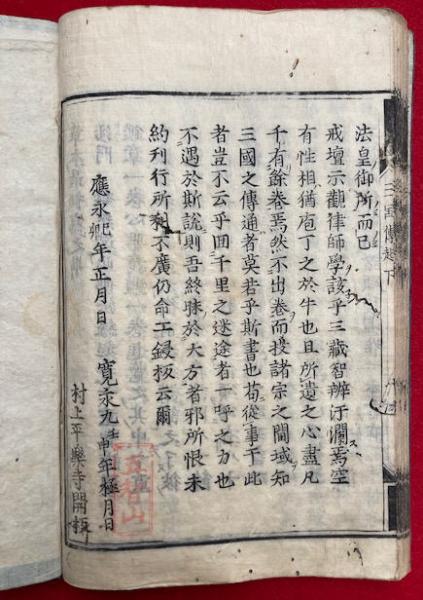 三国傳起下
法皇御所而已
戒壇示觀律師學該乎三藏智辨汙瀾焉空
有性相猶庖丁之於牛也且所遺之心盡凡
千有餘卷焉然不出卷而授諸宗之閫域知
三國之傳通者莫若乎斯書也苟從事于此
者豈不云乎囬千里之迷途者一呼之力也
不遇於斯說則吾終昧於大方者邪所恨未
約刊行所利不廣仍命工鋟板云爾
應永己卯年正月日 寬永九壬申年極月日
村上平樂寺開板
五智山